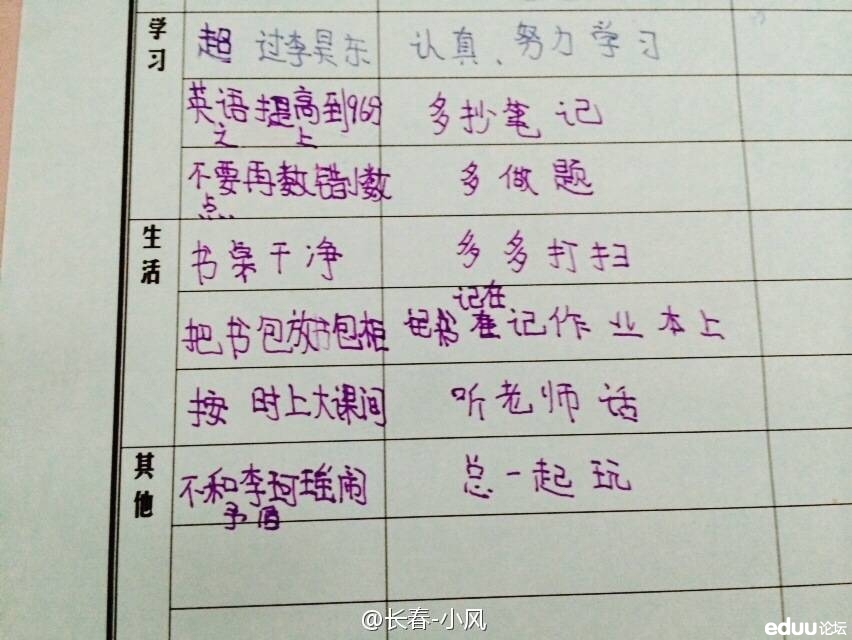 学习
超过李昊东 认真、努力学习
英语提高到96分 多抄笔记
之上
不要再数错小数 多做题
点
生活
书桌干净 多多打扫
记在
把书包放书包柜 记作业本上
按时上大课间 听老师话
其他
不和李珂瑶闹 总一起玩
矛盾
@长春-小风
eduu论坛